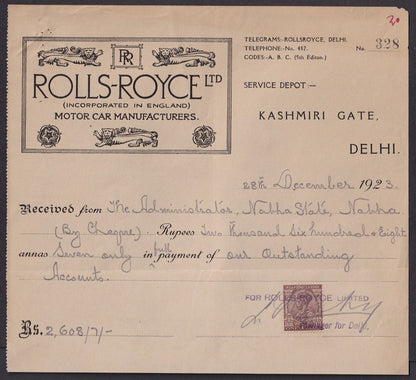 20
TELEGRAMS-ROLLSROYCE, DELHI.
TELEPHONE:-No. 417.
No. 328
CODES:-A. B. C. (5th Editon.)
RR
ROLLS-ROYCE LTD
(INCORPORATED IN ENGLAND)
MOTOR CAR MANUFACTURERS.
SERVICE DEPOT:-
KASHMIRI GATE,
DELHI.
28th December 1923.
Received from The Administrator, Nabha State, Nabha
(By Cheque). Rupees Two Thousand Six Hundred & Eight
annas Seven only in full payment of our Outstanding
Accounts.
FOR ROLLS-ROYCE LIMITED
Manager for Delhi.
Rs. 2,608/7/-